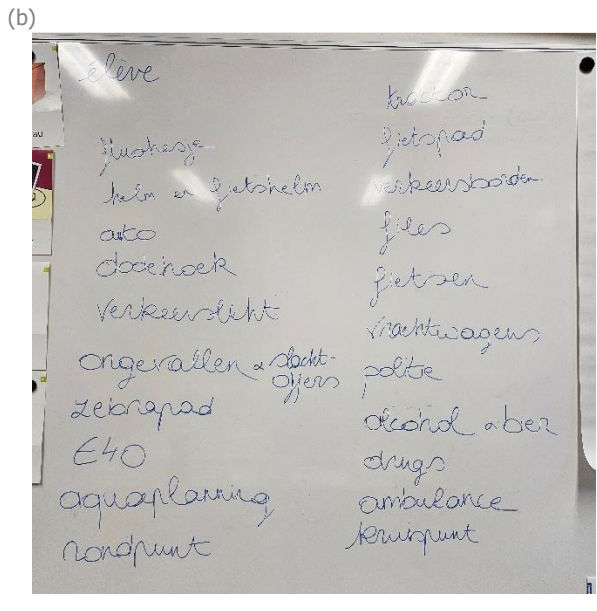 (b)
élève
fluohesje
helm en fietshelm
auto
dodehoek
verkeerslicht
ongevallen + slacht-
offers
zebrapad
E40
aquaplanning
rondpunt
tractor
fietspad
verkeersborden
files
fietsen
vrachtwagens
politie
alcohol + bier
drugs
ambulance
kruispunt
au